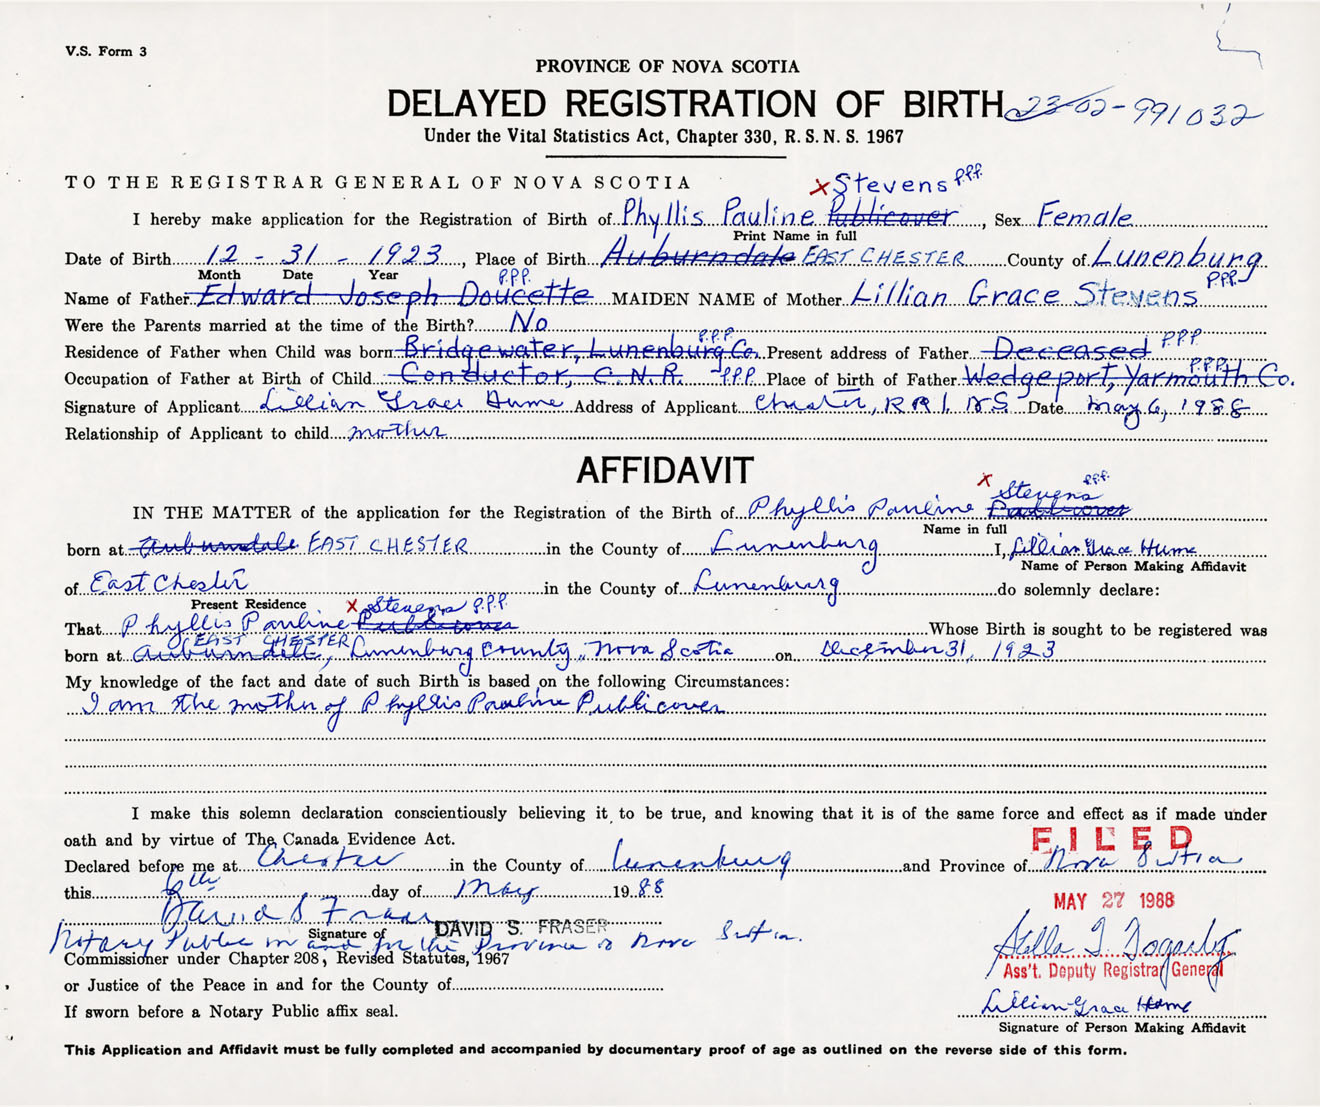 V.S. Form 3
PROVINCE OF NOVA SCOTIA
DELAYED REGISTRATION OF BIRTH 23-02-991032
Under the Vital Statistics Act, Chapter 330, R.S.N.S. 1967
TO THE REGISTRAR GENERAL OF NOVA SCOTIA
x Stevens P.P.P.
I hereby make application for the Registration of Birth of Phyllis Pauline Publicover, Sex Female
Print Name in full
Date of Birth 12 - 31 - 1923, Place of Birth Auburndale EAST CHESTER County of Lunenburg
Month Date Year P.P.P. P.P.P.
Name of Father Edward Joseph Doucette MAIDEN NAME of Mother Lillian Grace Stevens
Were the Parents married at the time of the Birth? No
P.P.P. P.P.P.
Residence of Father when Child was born Bridgewater, Lunenburg Co. Present address of Father Deceased
P.P.P.
Occupation of Father at Birth of Child Conductor, C.N.R. P.P.P. Place of birth of Father Wedgeport, Yarmouth Co.
Signature of Applicant Lillian Grace Hume Address of Applicant Chester, RR1, NS Date May 6, 1988
Relationship of Applicant to child mother
AFFIDAVIT
x Stevens P.P.P.
IN THE MATTER of the application for the Registration of the Birth of Phyllis Pauline Publicover
Name in full
born at Auburndale EAST CHESTER in the County of Lunenburg I, Lillian Grace Hume
Name of Person Making Affidavit
of East Chester in the County of Lunenburg do solemnly declare:
Present Residence x Stevens P.P.P.
That Phyllis Pauline Publicover Whose Birth is sought to be registered was
EAST CHESTER
born at Auburndale, Lunenburg County, Nova Scotia on December 31, 1923
My knowledge of the fact and date of such Birth is based on the following Circumstances:
I am the mother of Phyllis Pauline Publicover
I make this solemn declaration conscientiously believing it to be true, and knowing that it is of the same force and effect as if made under
oath and by virtue of The Canada Evidence Act.
FILED
Declared before me at Chester in the County of Lunenburg and Province of Nova Scotia
this 6th day of May 1988
MAY 27 1988
David S Fraser
Signature of DAVID S. FRASER
Notary Public in and for the Province of Nova Scotia.
Stella T. Fogarty
Commissioner under Chapter 208, Revised Statutes, 1967
Ass't. Deputy Registrar General
or Justice of the Peace in and for the County of
Lillian Grace Hume
If sworn before a Notary Public affix seal.
Signature of Person Making Affidavit
This Application and Affidavit must be fully completed and accompanied by documentary proof of age as outlined on the reverse side of this form.